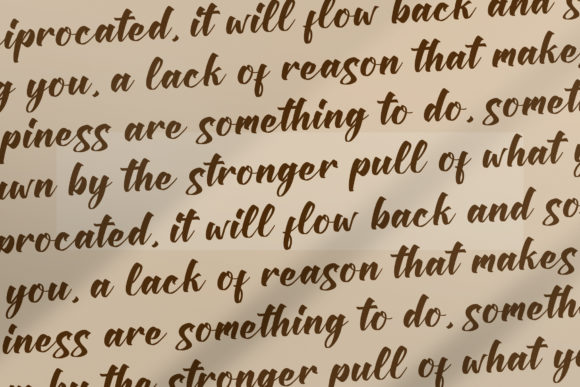 iprocated, it will flow back and s
g you, a lack of reason that makes
piness are something to do, somet
awn by the stronger pull of what y
procated, it will flow back and so
you, a lack of reason that makes
iness are something to do, someth
by the stronger pull of what y